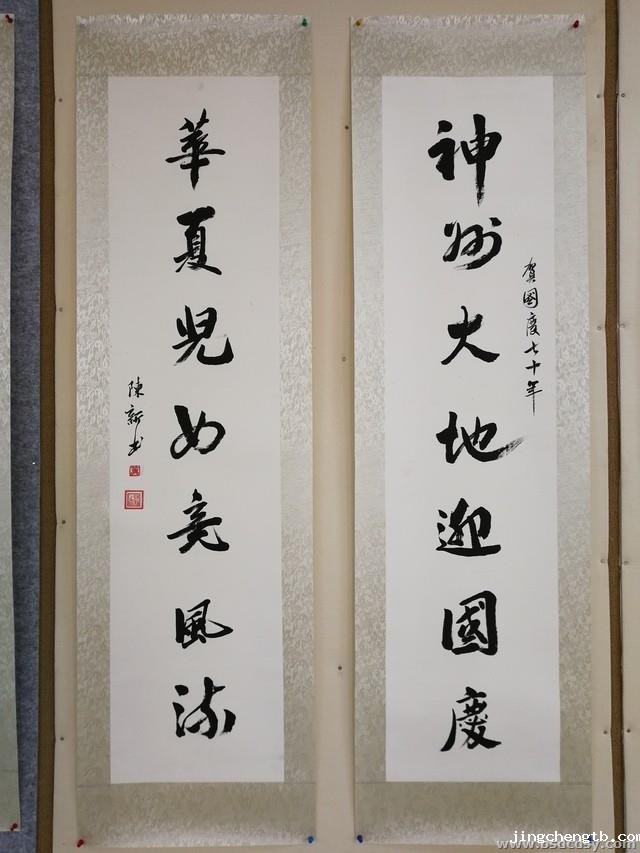 賀國慶七十年
神州大地迎國慶
華夏児女竞風流
陳新书
jingchengtb.com
www.bsdcdsy.com